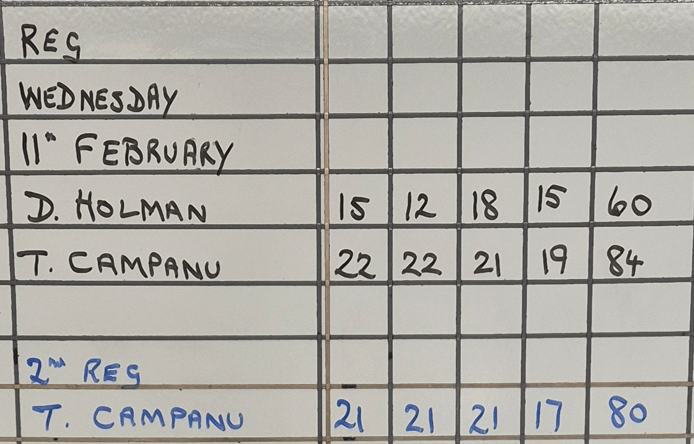 REG
WEDNESDAY
11th FEBRUARY
D. HOLMAN 15 12 18 15 60
T. CAMPANU 22 22 21 19 84
2nd REG
T. CAMPANU 21 21 21 17 80